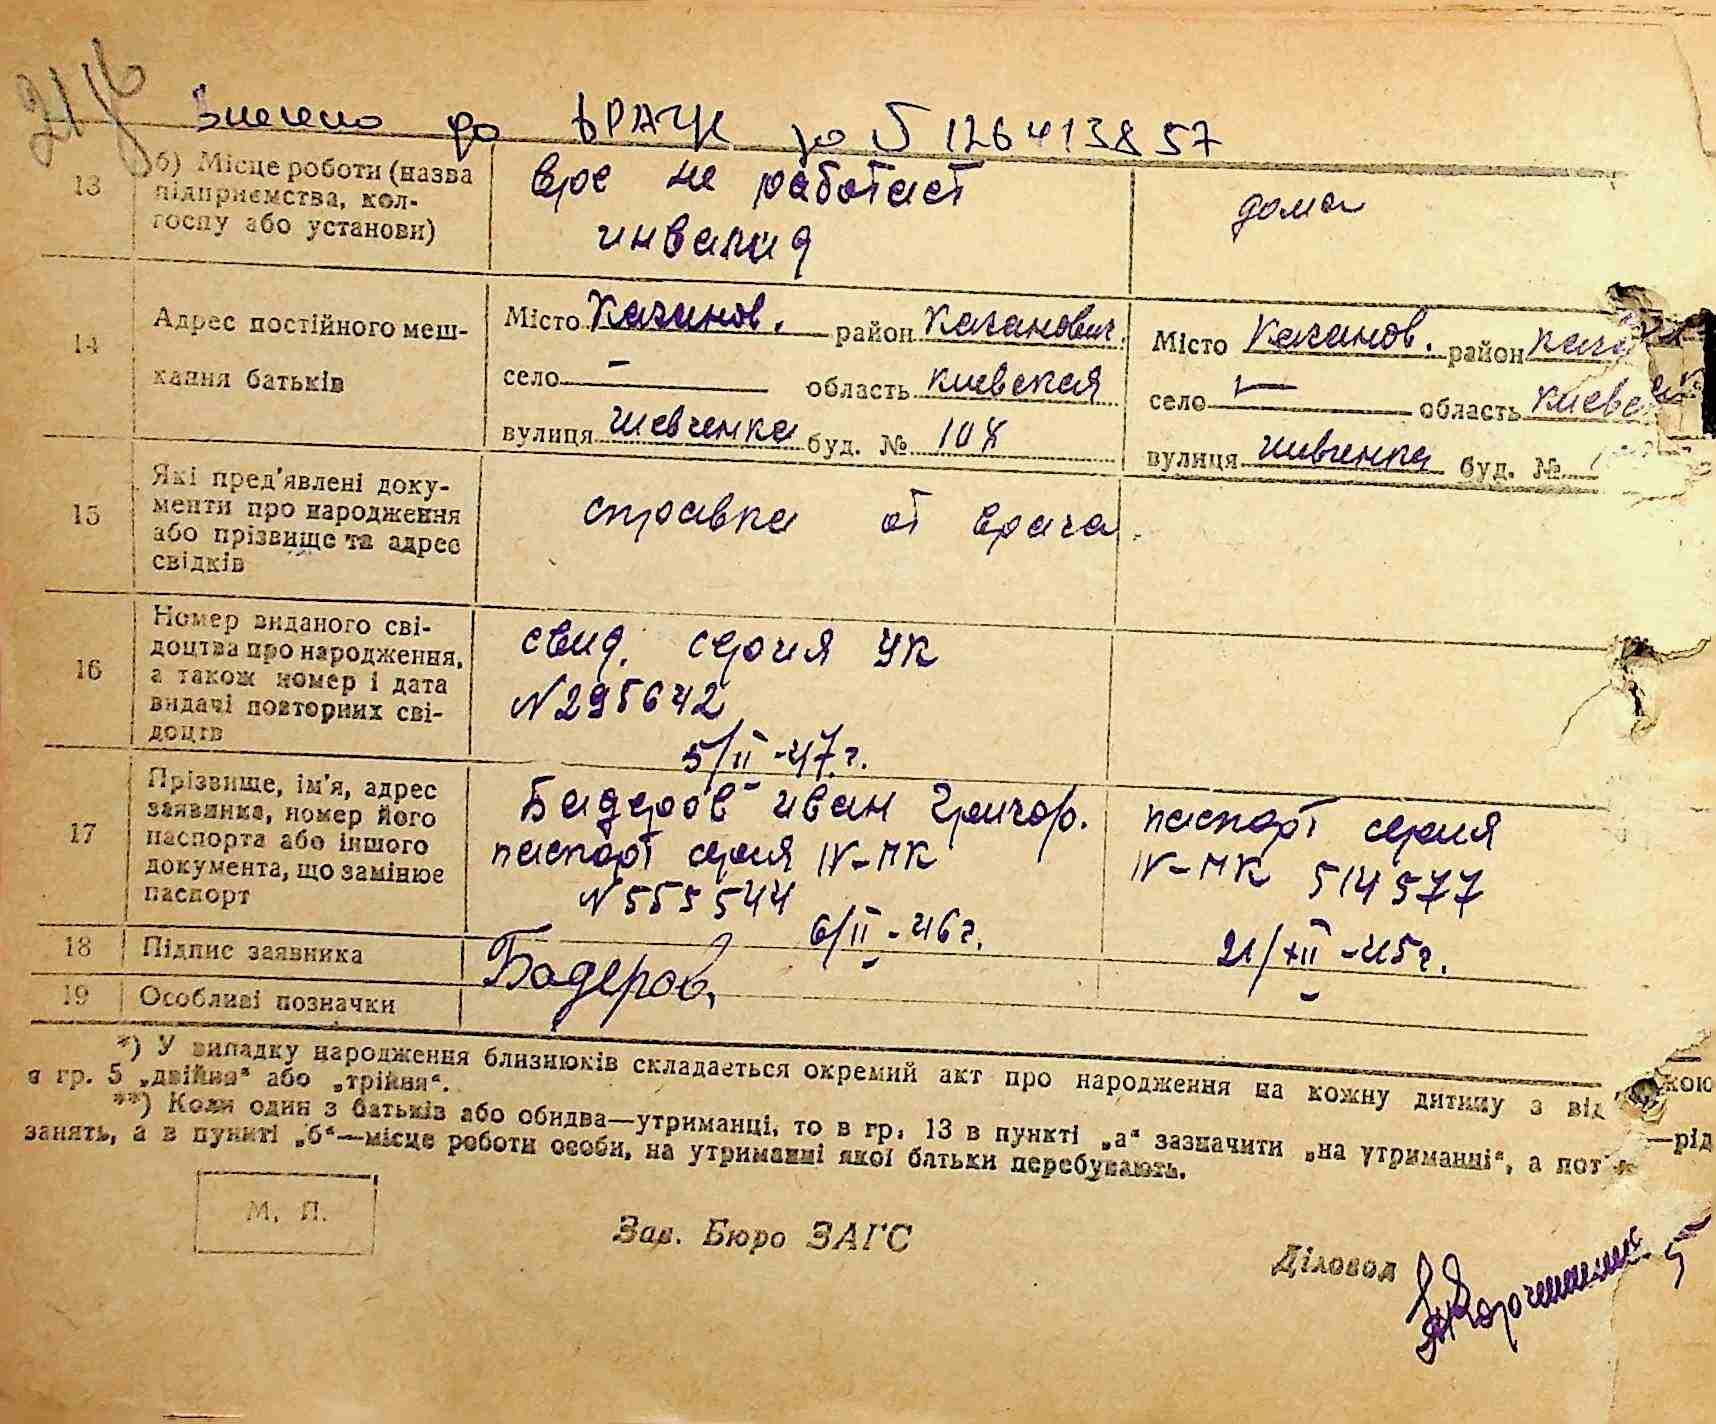 21/б
Внесено до ДРАЦС за № 126413857
13 б) Місце роботи (назва підприємства, колгоспу або установи)
не работает
инвалид
дома
14 Адрес постійного мешкання батьків
Місто Каганов. район Каганович.
село — область Киевская
вулиця Шевченка буд. № 108
Місто Каганов. район Кага
село — область Киевс
вулиця Шевченка буд. №
15 Які пред'явлені документи про народження або прізвище та адрес свідків
справка от врача
16 Номер виданого свідоцтва про народження, а також номер і дата видачі повторних свідоцтв
свид. серия УК
№ 295642
5/II-47 г.
17 Прізвище, ім'я, адрес заявника, номер його паспорта або іншого документа, що замінює паспорт
Бадеров Иван Григор.
паспорт серия IV-МК
№ 555544
6/II-46 г.
паспорт серия
IV-МК 514577
21/XII-45 г.
18 Підпис заявника
Бадеров
19 Особливі позначки
*) У випадку народження близнюків складається окремий акт про народження на кожну дитину з від
в гр. 5 „двійня“ або „трійня“.
**) Коли один з батьків або обидва—утриманці, то в гр. 13 в пункті „а“ зазначити „на утриманні“, а пот —рід
занять, а в пункті „б“—місце роботи особи, на утриманні якої батьки перебувають.
М. П.
Зав. Бюро ЗАГС
Діловод